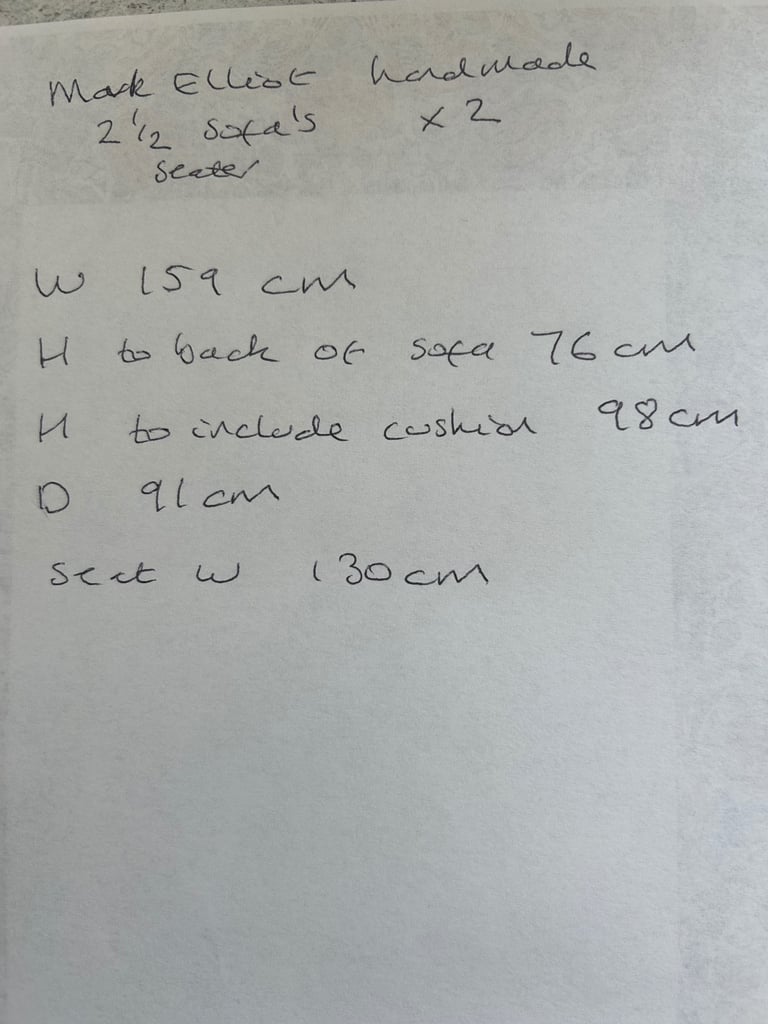 Mark Elliot handmade
2 1/2 sofa's x 2
seater
W 159 cm
H to back of sofa 76 cm
H to include cushion 98 cm
D 91 cm
seat W 130 cm